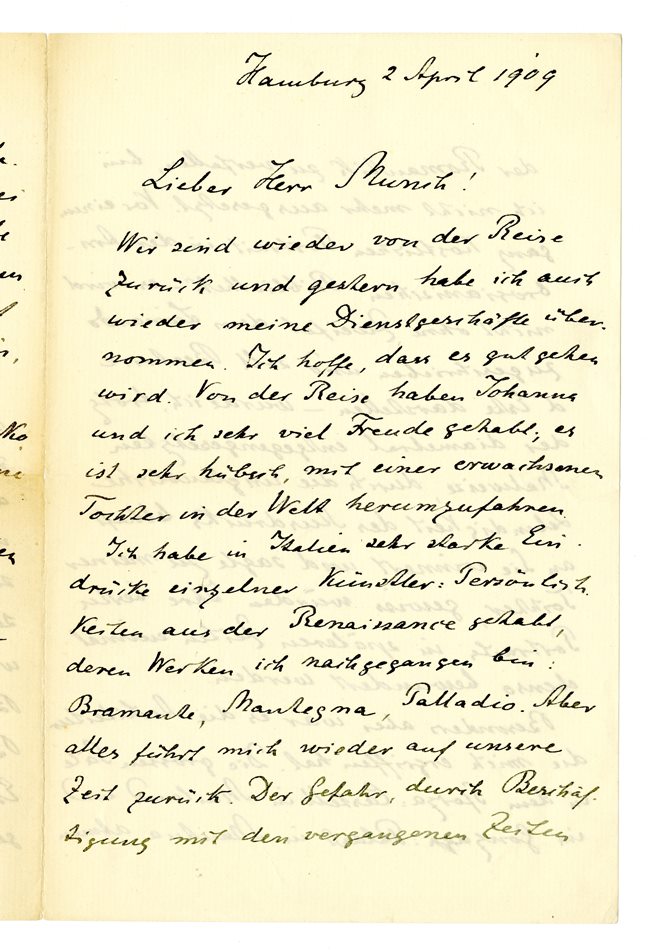 Hamburg 2 April 1909
Lieber Herr Munch!
Wir sind wieder von der Reise
zurück und gestern habe ich auch
wieder meine Dienstgeschäfte über-
nommen. Ich hoffe, dass es gut gehen
wird. Von der Reise haben Johanna
und ich sehr viel Freude gehabt; es
ist sehr hübsch, mit einer erwachsenen
Tochter in der Welt herumzufahren.
Ich habe in Italien sehr starke Ein-
drücke einzelner Künstler-Persönlich-
keiten aus der Renaissance gehabt,
deren Werken ich nachgegangen bin:
Bramante, Mantegna, Palladio. Aber
alles führt mich wieder auf unsere
Zeit zurück. Der Gefahr, durch Beschäf-
tigung mit den vergangenen Zeiten